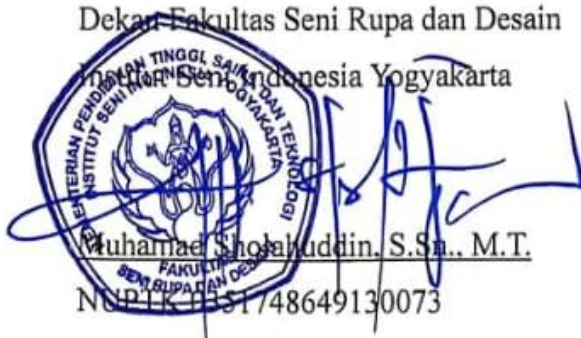 Dekan Fakultas Seni Rupa dan Desain
Institut Seni Indonesia Yogyakarta
KEMENTERIAN PENDIDIKAN TINGGI, SAINS, DAN TEKNOLOGI
INSTITUT SENI INDONESIA YOGYAKARTA
FAKULTAS
SENI RUPA DAN DESAIN
Muhamad Sholahuddin, S.Sn., M.T.
NUPTK 0351748649130073